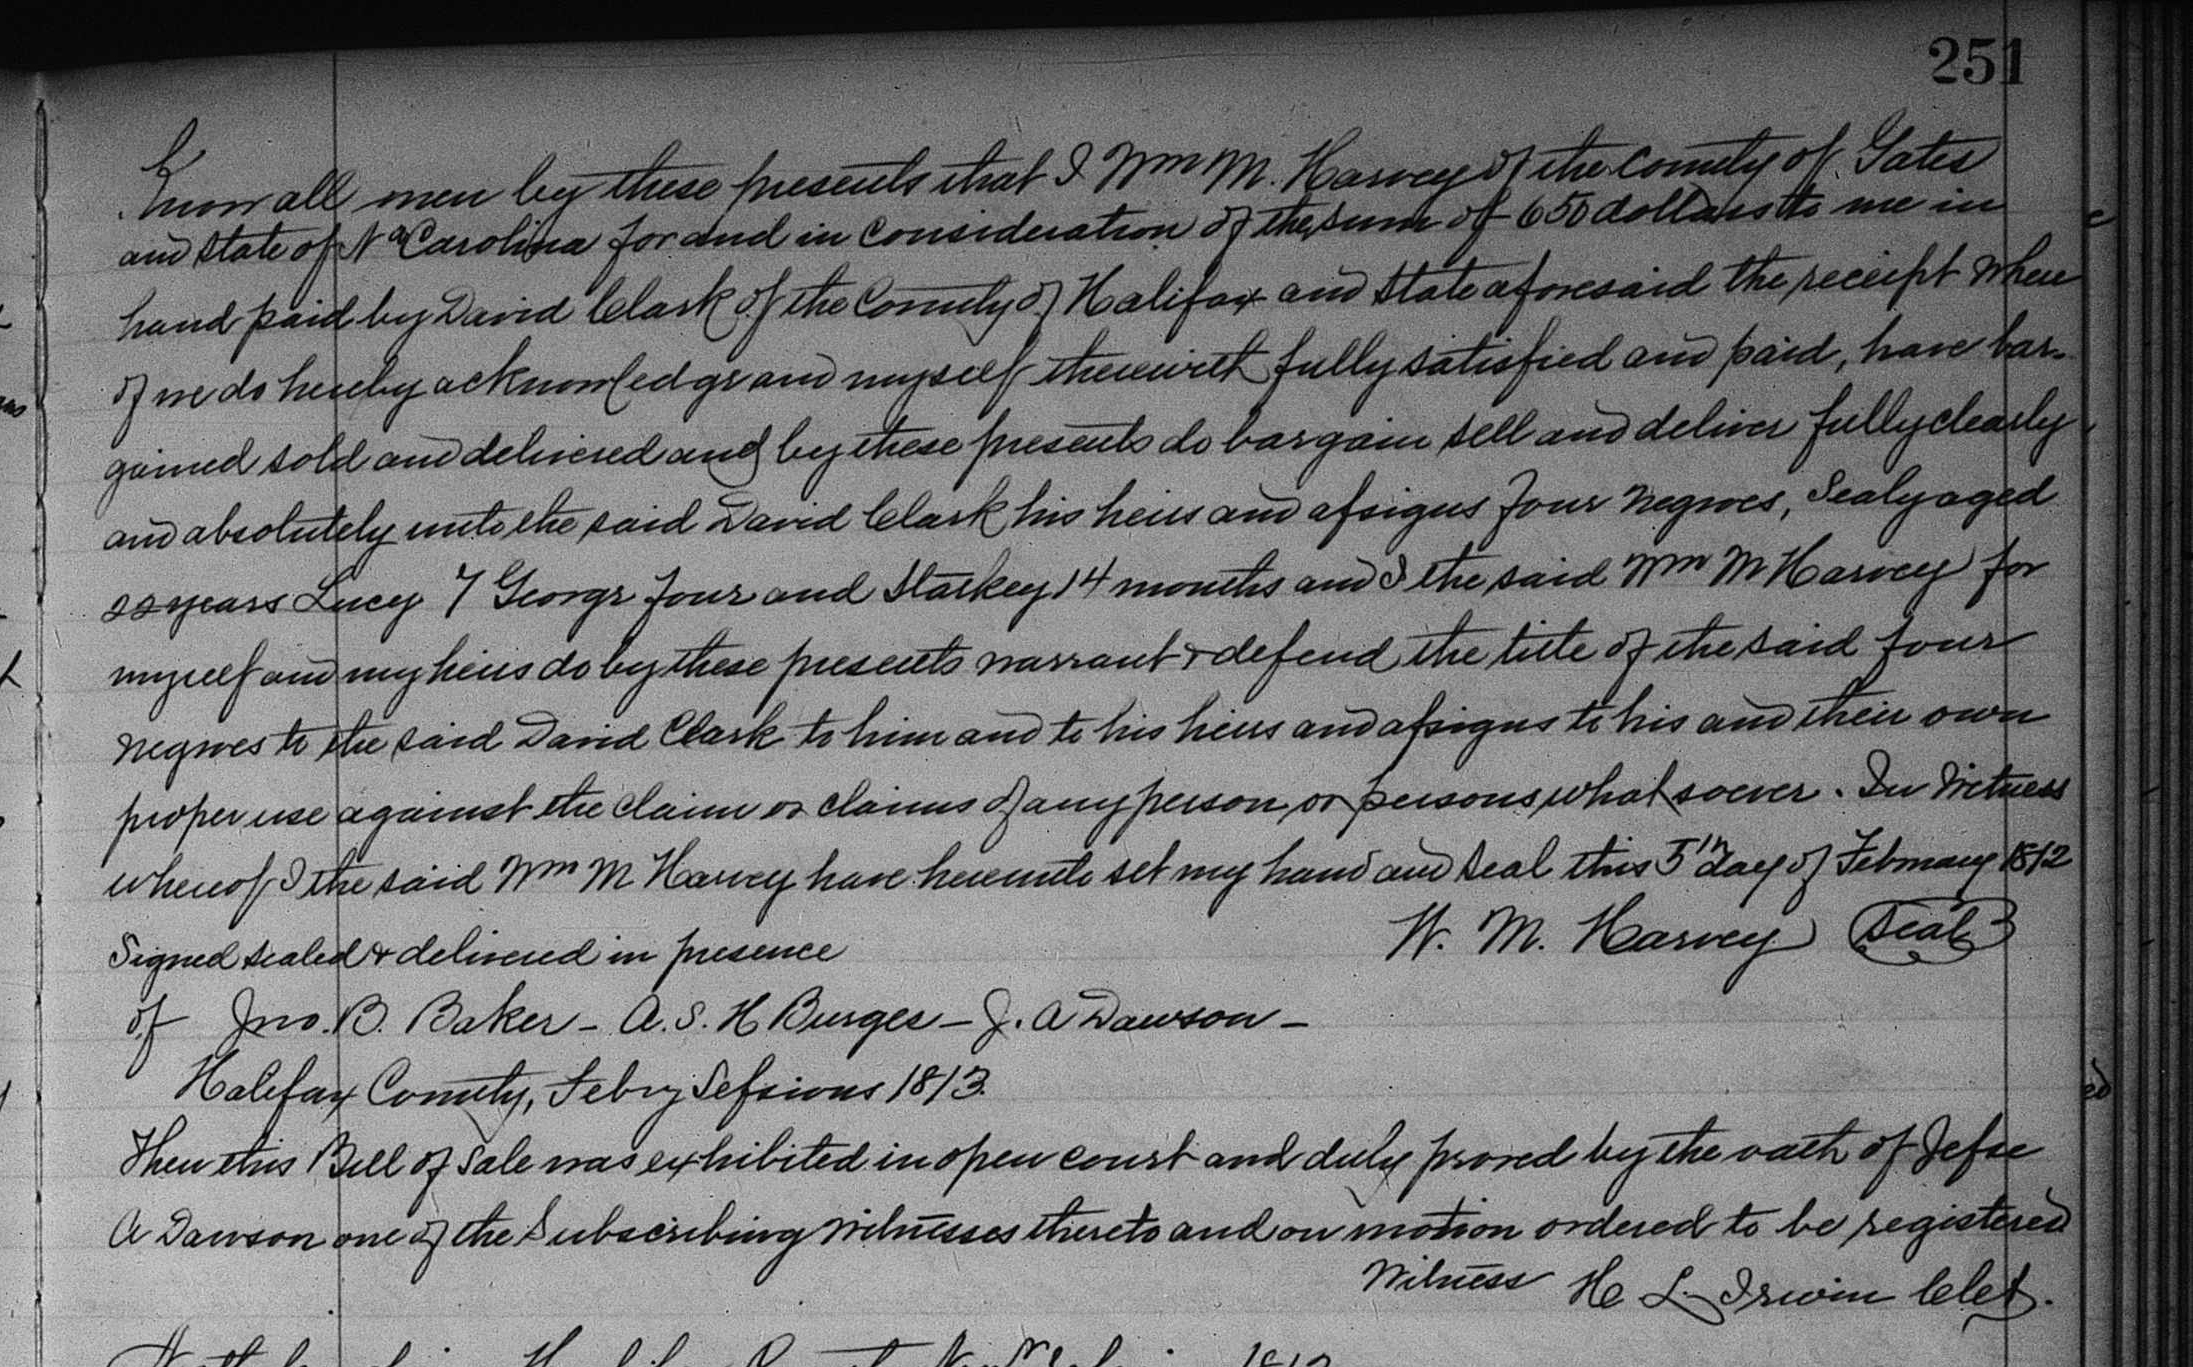 251
Know all men by these presents that I Wm M. Harvey of the County of Gates
and State of Na Carolina for and in consideration of the sum of 650 dollars to me in
hand paid by David Clark of the County of Halifax and State aforesaid the receipt where
of we do hereby acknowledge and myself therewith fully satisfied and paid, have bar-
gained sold and delivered and by these presents do bargain sell and deliver fully clearly
and absolutely unto the said David Clark his heirs and assigns four negroes, Sealy aged
22 years Lucy 7 George four and Starkey 14 months and I the said Wm M Harvey for
myself and my heirs do by these presents warrant & defend the title of the said four
negroes to the said David Clark to him and to his heirs and assigns to his and their own
proper use against the claim or claims of any person or persons whatsoever. In Witness
whereof I the said Wm M Harvey have hereunto set my hand and seal this 5th day of February 1812
Signed sealed & delivered in presence W. M. Harvey Seal
of Jno. B. Baker - A. S. H Burges - J. A Dawson -
Halifax County, Febry Sessions 1813.
Then this Bill of Sale was exhibited in open court and duly proved by the oath of Jesse
A Dawson one of the Subscribing Witnesses thereto and on motion ordered to be registered
Witness H L Irwin Clet.